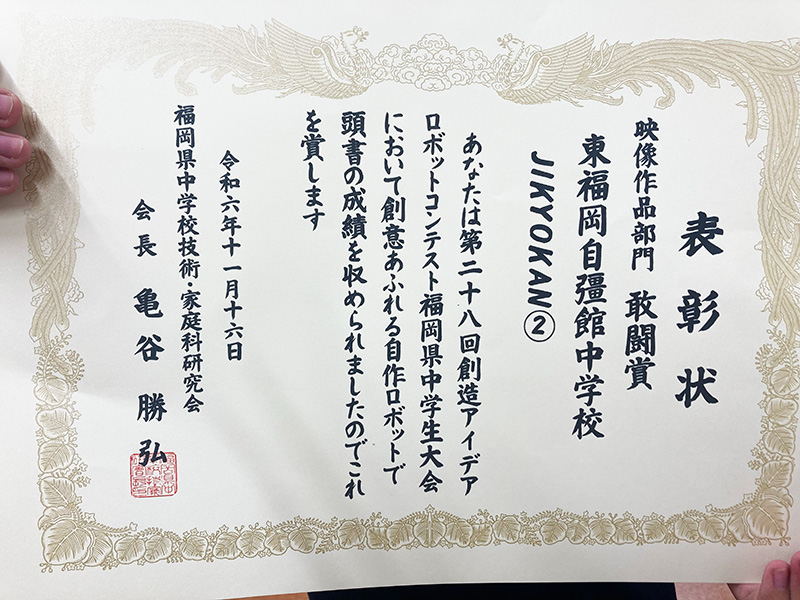 表彰状
映像作品部門 敢闘賞
東福岡自彊館中学校
JIKYOKAN②
あなたは第二十八回創造アイデア
ロボットコンテスト福岡県中学生大会
において創意あふれる自作ロボットで
頭書の成績を収められましたのでこれ
を賞します
令和六年十一月十六日
福岡県中学校技術・家庭科研究会
会長 亀谷勝弘